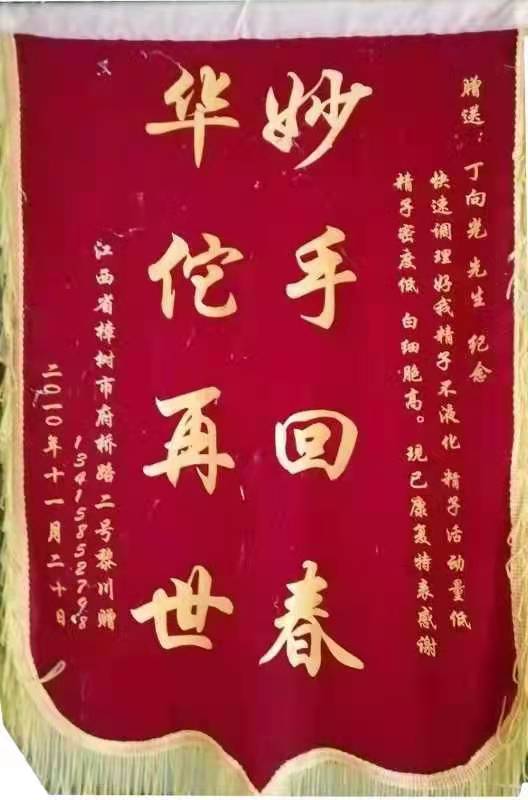 赠送：丁向光先生 纪念
快速调理好我精子不液化 精子活动量低
精子密度低 白细胞高。现已康复特表感谢
妙手回春
华佗再世
江西省樟树市府桥路二号黎川赠
13415852798
二〇一〇年十一月二十日